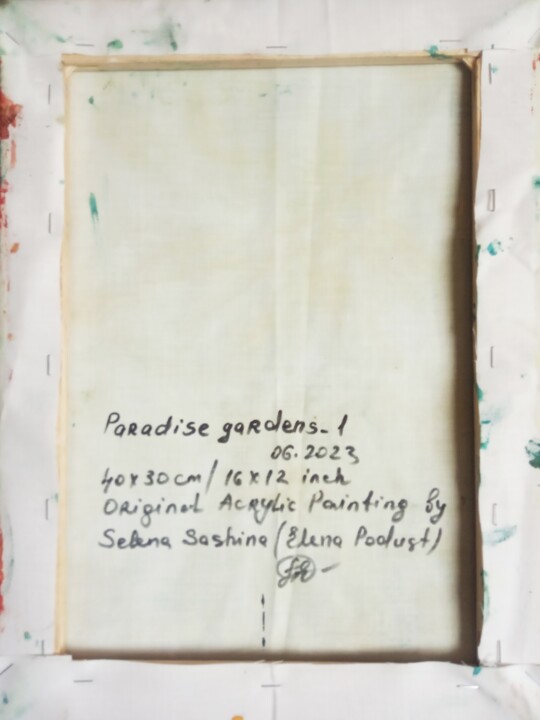 Paradise gardens-1
06.2023
40x30cm/16x12 inch
Original Acrylic Painting by
Selena Sashina (Elena Podust)